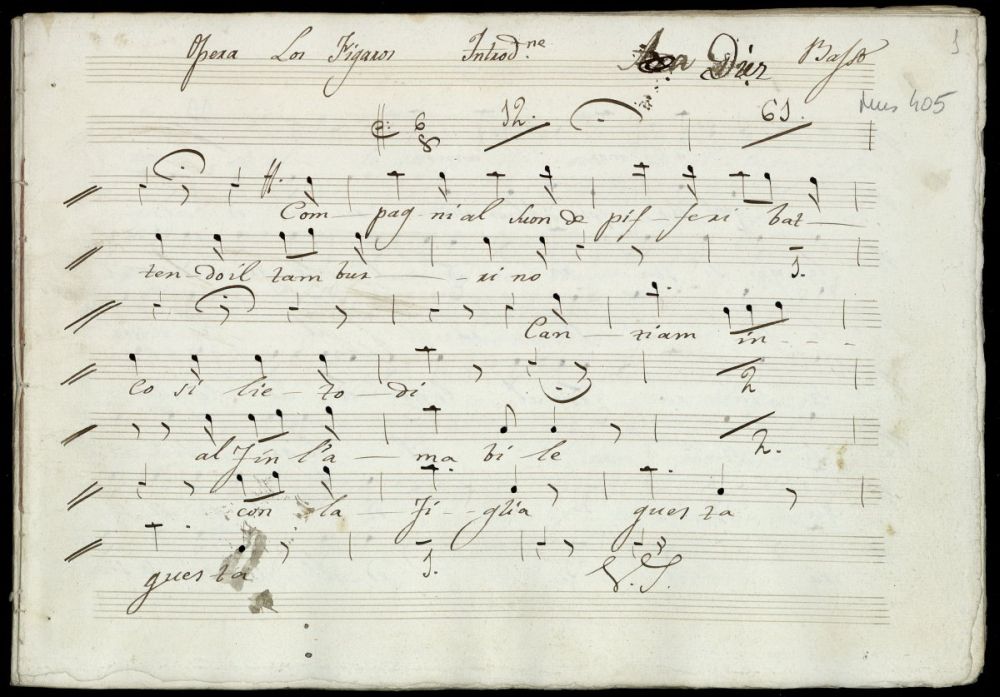 Opera Los Figaros Introd.ne Basso
1
Mus 405
6 8 12. 61.
Com - pag ni al suon de pif - feri bat -
ten - do il tam bur - - ri no
1.
Can - ziam in - - -
co si lie - to - di
2
al fin l'a - ma bi le
2.
con la - fi - glia questa
questa
1.
V.S.